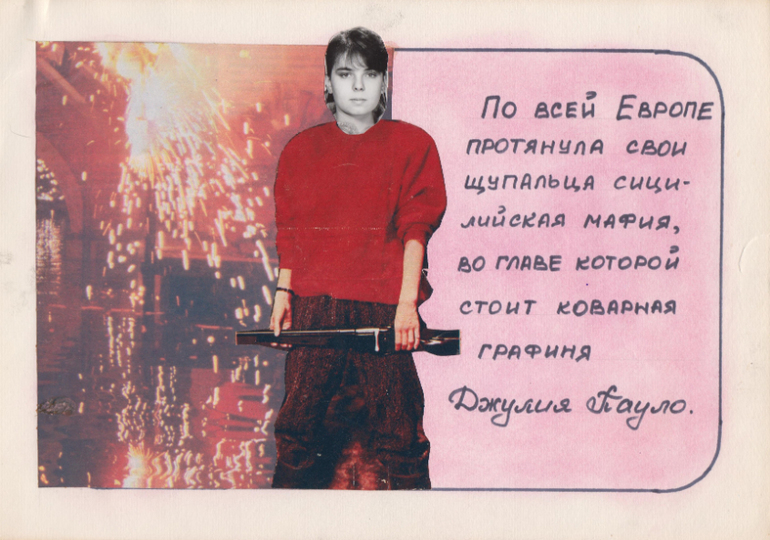 По всей Европе
протянула свои
щупальца сици-
лийская мафия,
во главе которой
стоит коварная
графиня
Джулия Пауло.